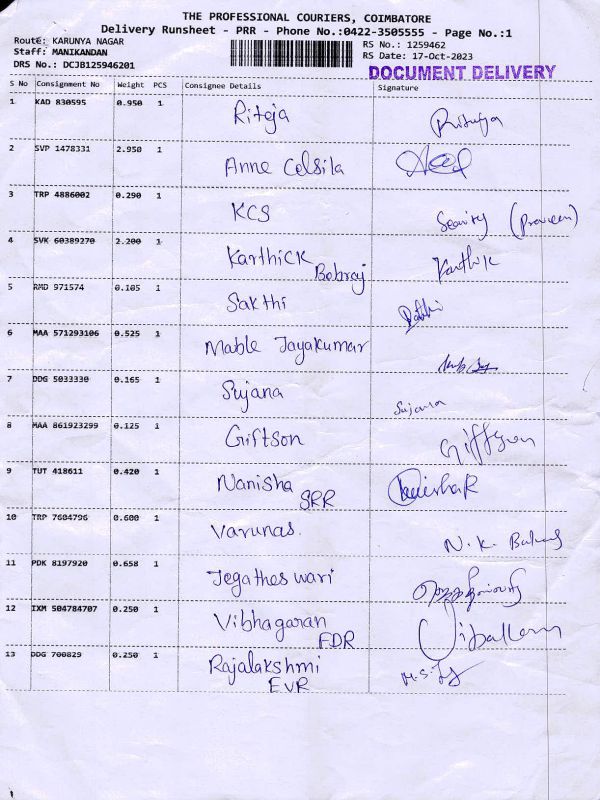 THE PROFESSIONAL COURIERS, COIMBATORE
Delivery Runsheet - PRR - Phone No.:0422-3505555 - Page No.:1
Route: KARUNYA NAGAR
Staff: MANIKANDAN
DRS No.: DCJB125946201
RS No.: 1259462
RS Date: 17-Oct-2023
DOCUMENT DELIVERY
S No Consignment No Weight PCS Consignee Details Signature
1 KAD 830595 0.950 1 Riteja
2 SVP 1478331 2.950 1 Anne Celsila
3 TRP 4886002 0.290 1 KCS Security (Praveen)
4 SVK 60389270 2.200 1 Karthick Karthik
Bobraj
5 RMD 971574 0.105 1 Sakthi
6 MAA 571293106 0.525 1 Mable Jayakumar
7 DDG 5033330 0.165 1 Sujana Sujana
8 MAA 861923299 0.125 1 Giftson
9 TUT 418611 0.420 1 Nanisha
SRR
10 TRP 7604796 0.600 1 Varunas. N.K.
11 PDK 8197920 0.658 1 Jegatheswari
12 IXM 504784707 0.250 1 Vibhagaran
FDR
13 DDG 700829 0.250 1 Rajalakshmi
EVR